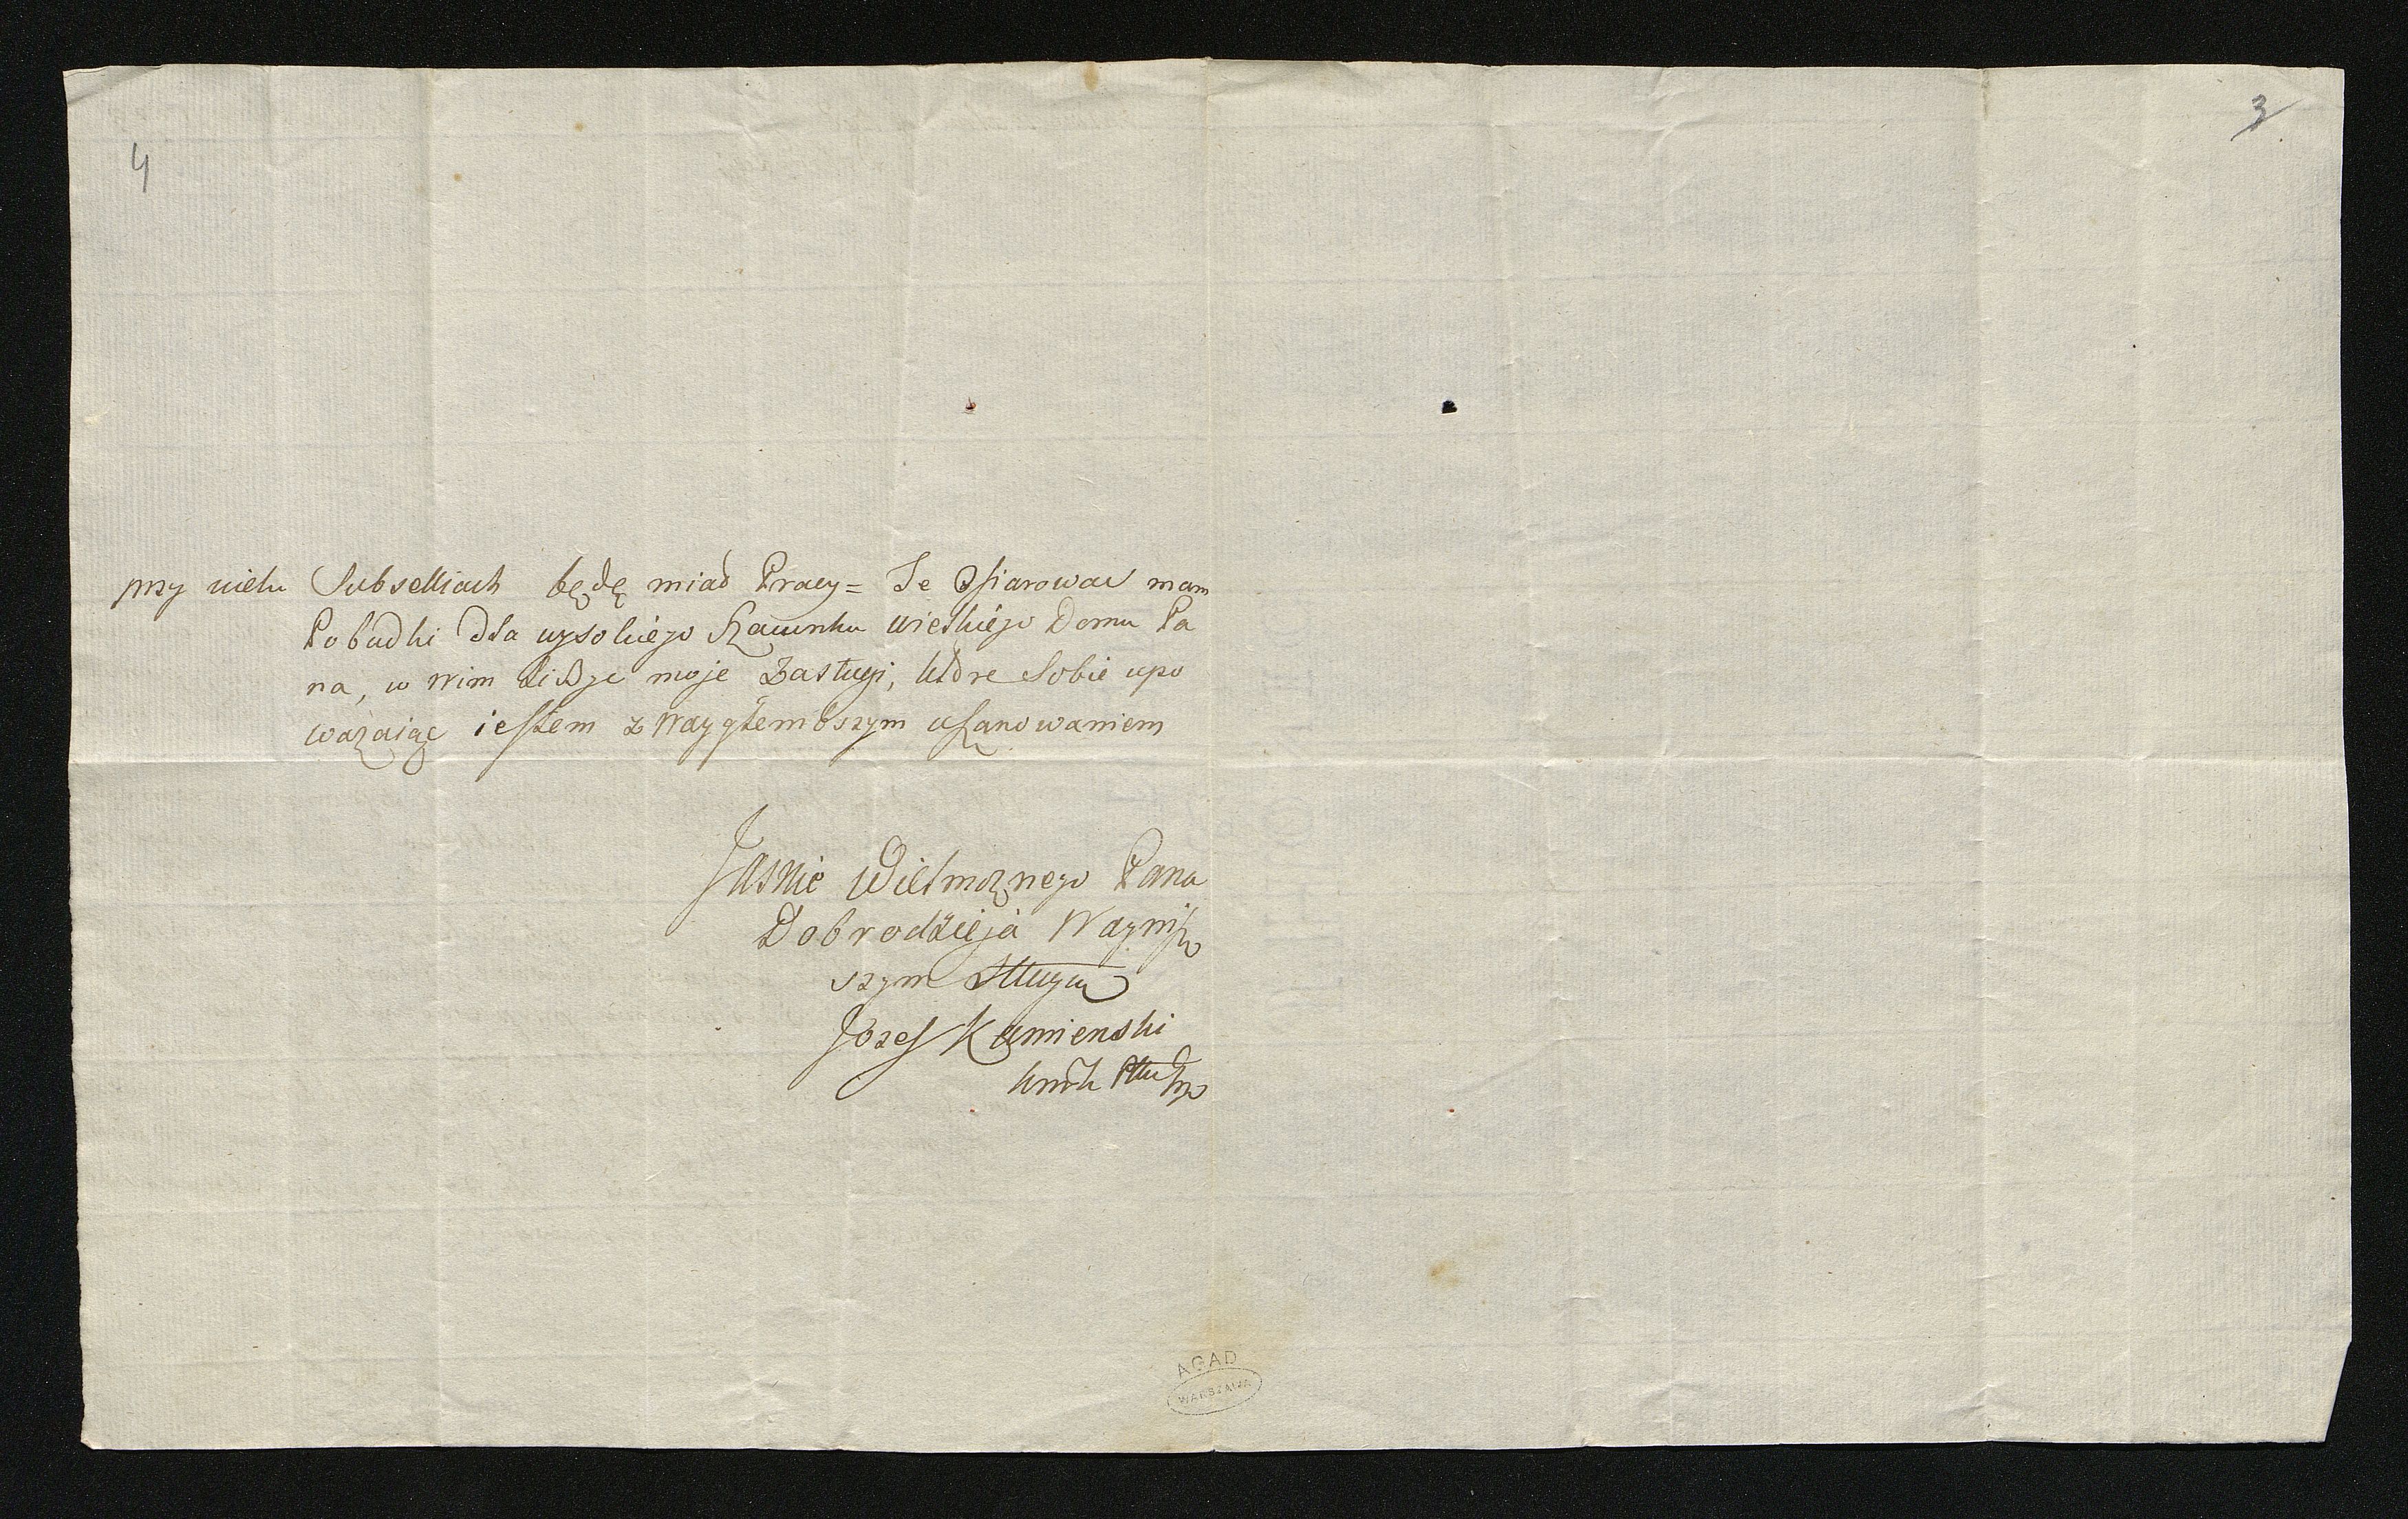 4
3
przy wielu Subselliach będę miał Pracy = Te Ofiarować mam
Pobudki dla wysokiego Szacunku wielkiego Domu Pa
na, w nim liszę moje Zasługi, które Sobie upo
ważaiąc iestem z Naygłembszym uszanowaniem
Jasnie Wielmożnego Pana
Dobrodzieja Nayniż
szym Sługą
Jozef Kamienski
AGAD
WARSZAWA